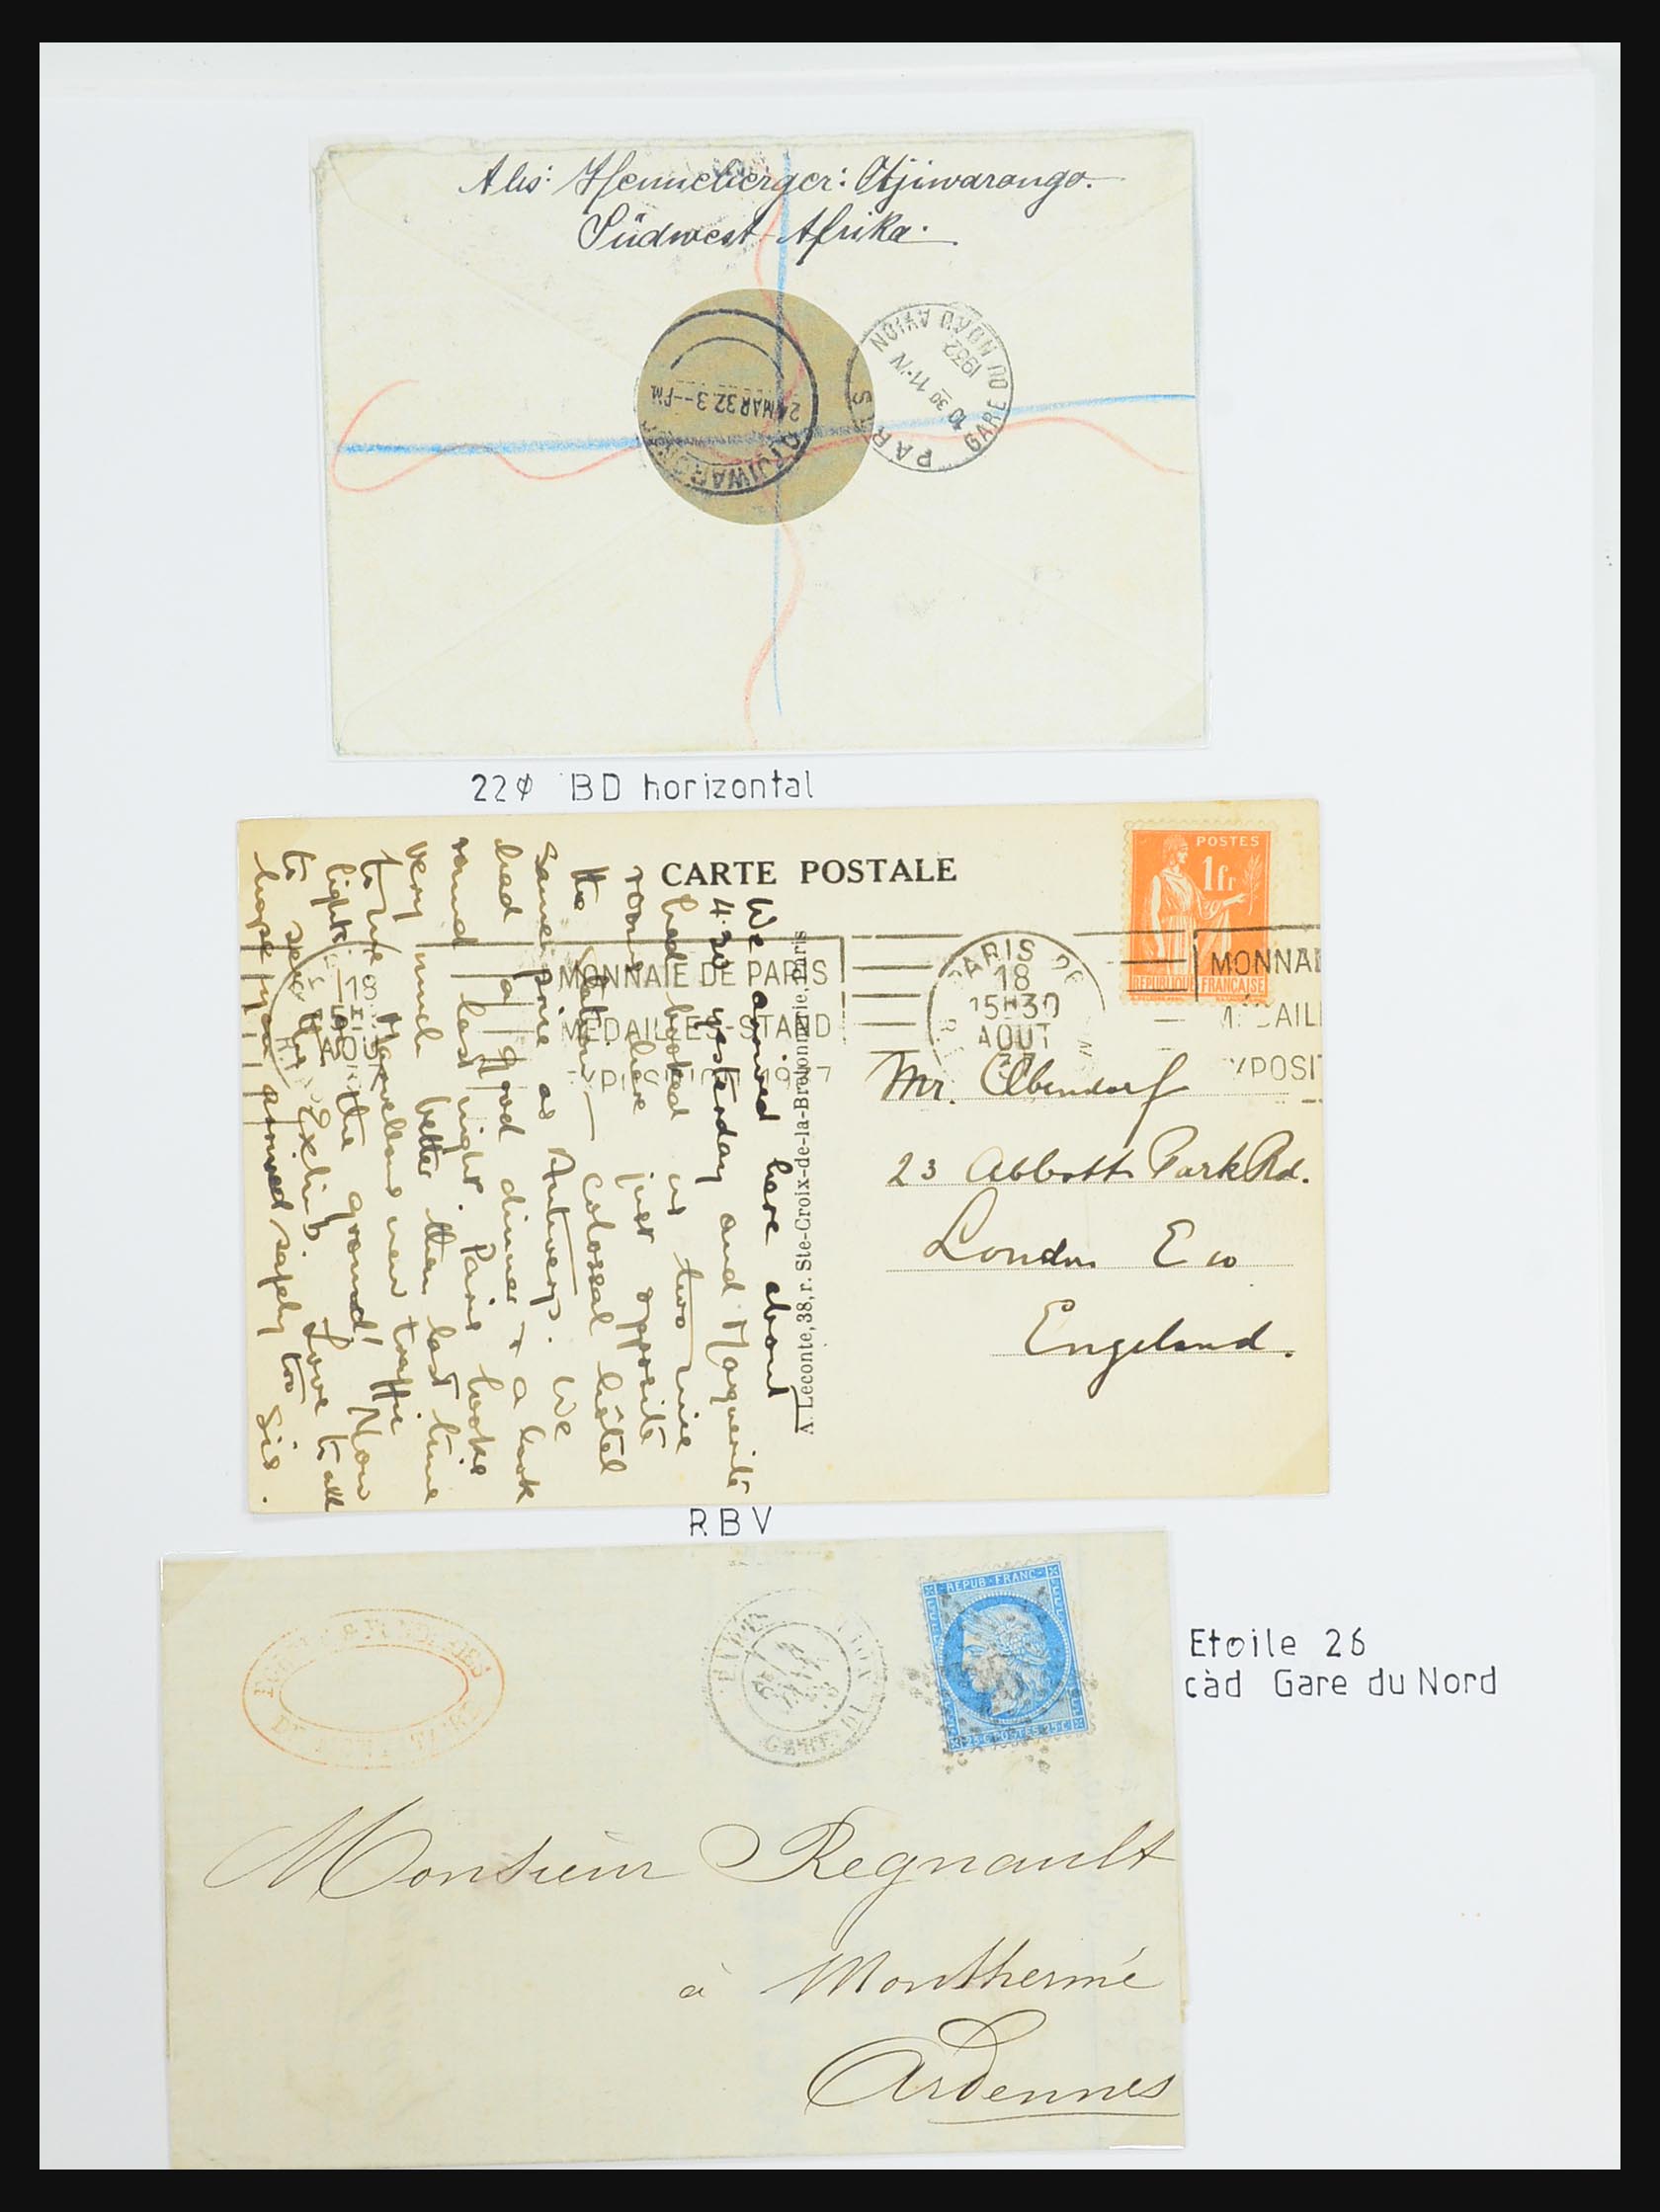 Abs: Henneberger: Otjiwarongo.
Südwest-Afrika.
PARIS GARE DU NORD AVION
10 30 11-IV
1932
OTJIWARONGO
24 MAR 32 3--PM
22¢ BD horizontal
CARTE POSTALE
POSTES
1fr
REPUBLIQUE FRANÇAISE
PARIS
18
15H30
AOUT
37
MONNAIE DE PARIS
MEDAILLES-STAND
MONNAI
MEDAILL
XPOSIT
We arrived here about
4.30 yesterday and Marguerite
had booked us two nice
rooms here just opposite
the station — colossal hôtel
same price as Antwerp. We
had a good dinner & a look
round last night. Paris looks
very much better than last time
to me. Marvellous new traffic
lights in the ground! Now
to see the Exhib. Love to all
hope you arrived safely too Sis.
A. Leconte, 38, r. Ste-Croix-de-la-Bretonnerie, Paris
Mr. Olbendorf
23 Abbott Park Rd.
London E 10
Engeland.
RBV
REPUB·FRANC·
25·C·POSTES·25·C
PARIS GARE DU
Etoile 26
càd Gare du Nord
Monsieur Regnault
à Monthermé
Ardennes